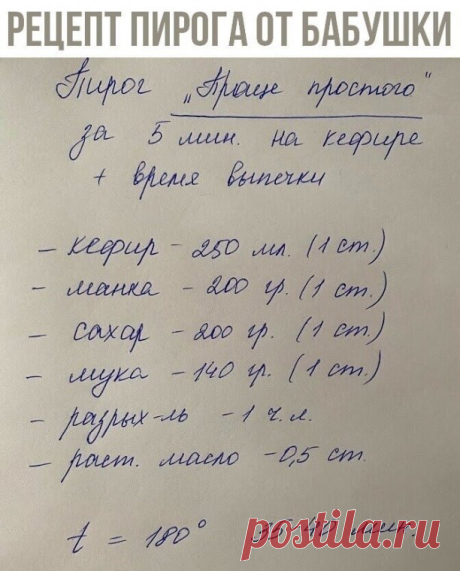 РЕЦЕПТ ПИРОГА ОТ БАБУШКИ
Пирог „Проще простого"
за 5 мин. на кефире
+ время выпечки
- кефир - 250 мл. (1 ст.)
- манка - 200 гр. (1 ст.)
- сахар - 200 гр. (1 ст.)
- мука - 140 гр. (1 ст.)
- разрых-ль - 1 ч.л.
- раст. масло - 0,5 ст.
t = 180° 35-40 мин.
postila.ru